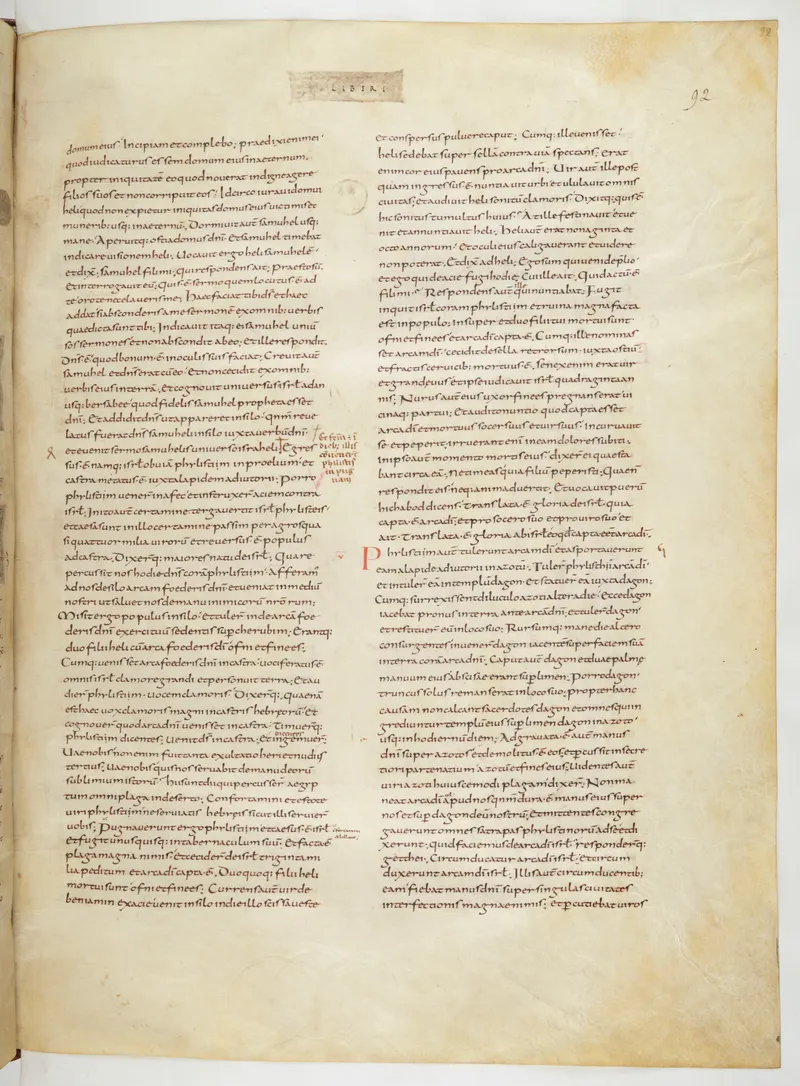 LIBERI
92
domum eius. Incipiam et complebo; praedixi enim ei
quod iudicaturus essem domum eius in aeternum.
propter iniquitatē eo quod noverat indigne agere
filios suos et non corripuit eos; Idcirco iuravi domui
heli quod non expietur iniquitas domus eius victimis et
muneribᵤſ usq; in aeternū; Dormivit aut̄ samuhel usq;
mane. Aperuitq; ostia domus dn̄i. Et samuhel timebat
indicare visionem heli; Vocavit ergo heli samuhelē.
et dix̄; samuhel fili mi; qui respondens ait; Praesto sū.
Et interrogavit eū; quis ē sermo quem locutus ē ad
te oro te ne celaveris me; Haec faciat tibi ds̄ et haec
addat si absconderis a me sermonē ex omnib; verbis
quae dicta sunt tibi; Indicavit itaq; ei samuhel univ̄
sos sermones et non abscondit ab eo; Et ille respondit.
Dn̄s ē quod bonum ē in oculis suis faciat; Crevit aut̄
samuhel et dn̄s erat cū eo. et non cecidit ex omnib;
verbis eius in terrā. Et cognovit universus isr̄l a dan
usq; bersabee quod fidelis samuhel propheta esset
dn̄i; Et addidit dn̄s ut appareret in silo. qn̄m reve
latus fuerat dn̄s samuheli in silo iuxta verbū dn̄i.
et evenit sermo samuhelis universo israheli; Egres
sus ē namq; isr̄l obviā phylistiim in proelium et
castra metatus ē iuxta lapidem adiutorii; Porro
phylistiim vener̄ in afec et instruxer̄ aciem contra
isr̄l; Inito aut̄ certamine terga vertit isr̄l phylisteis
et caesa sunt in illo certamine passim per agros qua
si quattuor milia virorū et reversus ē populus
ad castra; Dixerq; maiores natu de isr̄l; Quare
percussit nos hodie dn̄s corā phylistiim; Afferam̄
ad nos de silo arcam foederis dn̄i et veniat in mediū
nostri ut salvet nos de manu inimicorū nr̄orum;
Misit ergo populus in silo. et tuler̄ inde arcā foe
deris dn̄i exercituū sedentis sup cherubim; Erantq;
duo filii heli cū arca foederis dī ofni et finees.
Cumq; venisset arca foederis dn̄i in castra. vociferatus ē
omnis isr̄l clamore grandi et personuit terra; Et au
dier̄ phylistiim vocem clamoris. Dixerq; quaenā
est haec vox clamoris magni in castris hebreorū. Et
cognover̄ quod arca dn̄i venisset in castra. Timuerq;
phylistiim dicentes; Venit ds̄ in castra; Et ingemuer̄.
Vae nobis non enim fuit tanta exultatio heri et nudius
tertius; Vae nobis quis nos servabit de manu deorū
sublimium istorū; hi sunt dii qui percusser̄ aegyp
tum omni plaga in deserto; Confortamini et estote
viri phylistiim ne serviatis hebreis sicut illi servier̄
vobis; Pugnaverunt ergo phylistiim et caesus ē isr̄l
et fugit unusquisq; in tabernaculum suū; Et facta ē
plaga magna nimis. et cecider̄ de isr̄l triginta mi
lia peditum et arca dī capta ē. Duo quoq; filii heli
mortui sunt ofni et finees; Currens aut̄ vir de
beniamin ex acie venit in silo in die illo scissa veste
et conspersus pulvere caput; Cumq; ille venisset.
heli sedebat super sellā contra viā spectans; erat
enim cor eius pavens pro arca dn̄i; Vir aut̄ ille post
quam ingressus ē nuntiavit urbi et ululavit omnis
civitas; et audivit heli sonitū clamoris. Dixitq; quis ē
hic sonitus tumultus huius; At ille festinavit et ve
nit et annuntiavit heli; Heli aut̄ erat nonaginta et
octo annorum. Et oculi eius caligaverant et videre
non poterat. Et dix̄ ad heli; Ego sum qui veni de p̄lio
et ego qui de acie fugi hodie; Cui ille ait; Quid actū ē
fili mi; Respondens aut̄ ille qui nuntiabat; Fugit
inquit isr̄l coram phylistiim et ruina magna facta
est in populo; Insuper et duo filii tui mortui sunt
ofni et finees et arca dī capta ē. Cumq; ille nominas
set arcam dī. cecidit de sella retrorsum iuxta ostiū.
et fractis cervicib; mortuus ē; Senex enim erat vir
et grandevus et ipse iudicavit isr̄l quadraginta an
nis; Nurus aut̄ eius uxor finees pregnans erat vi
cinaq; partui; Et audito nuntio quod capta esset
arca dī et mortuus socer suus et vir suus. Incurvavit
se et peperit; irruerant enī in eam dolores subiti;
In ipso aut̄ momento mortis eius dixer̄ ei quae sta
bant circa eā. Ne timeas quia filiū peperisti; Quae n̄
respondit eis neq; animadvertit; Et vocavit puerū
hichabod dicens; Translata ē gloria de isr̄l. quia
capta ē arca dī; et pro socero suo et pro viro suo et
ait. Translata ē gloria ab isr̄l eo qd capta eēt arca dī.
Phylistiim aut̄ tulerunt arcam dī et asportaverunt
eam a lapide adiutorii in azotū; Tuler̄ phylisthii arcā dī
et intuler̄ eā in templū dagon. et statuer̄ eā iuxta dagon;
Cumq; surrexissent diluculo azotii altera die. Ecce dagon
iacebat pronus in terra ante arcā dn̄i. et tuler̄ dagon
et restituer̄ eū in loco suo; Rursumq; mane die altero
consurgentes invener̄ dagon iacentē super faciem suā
in terra corā arca dn̄i. Caput aut̄ dagon et duae palme
manuum eius abscisae erant sup limen; Porro dagon
truncus solus remanserat in loco suo; propter hanc
causam non calcant sacerdotes dagon et omnes qui in
grediuntur templū eius sup limen dagon in azoto
usq; in hodiernū diem; Adgravata ē aut̄ manus
dn̄i super azotos et demolitus ē eos; et p̄cussit in secre
tiori parte natium azotū et fines eius; Videntes aut̄
viri azotii huiuscemodi plagam dixer̄; Non ma
neat arca dī apud nos qn̄m dura ē manus eius super
nos et sup dagon deū nostrū; Et mittentes congre
gaverunt omnes satrapas phylistinorū ad se et di
xerunt; quid faciemus de arca dī isr̄l. responderq;
getthei. Circumducatur arca dī isr̄l. et circum
duxerunt arcam dī isr̄l. Illis aut̄ circumducentib;
eam fiebat manus dn̄i super singulas civitates
interfectionis magnae nimis; et p̄cutiebat viros